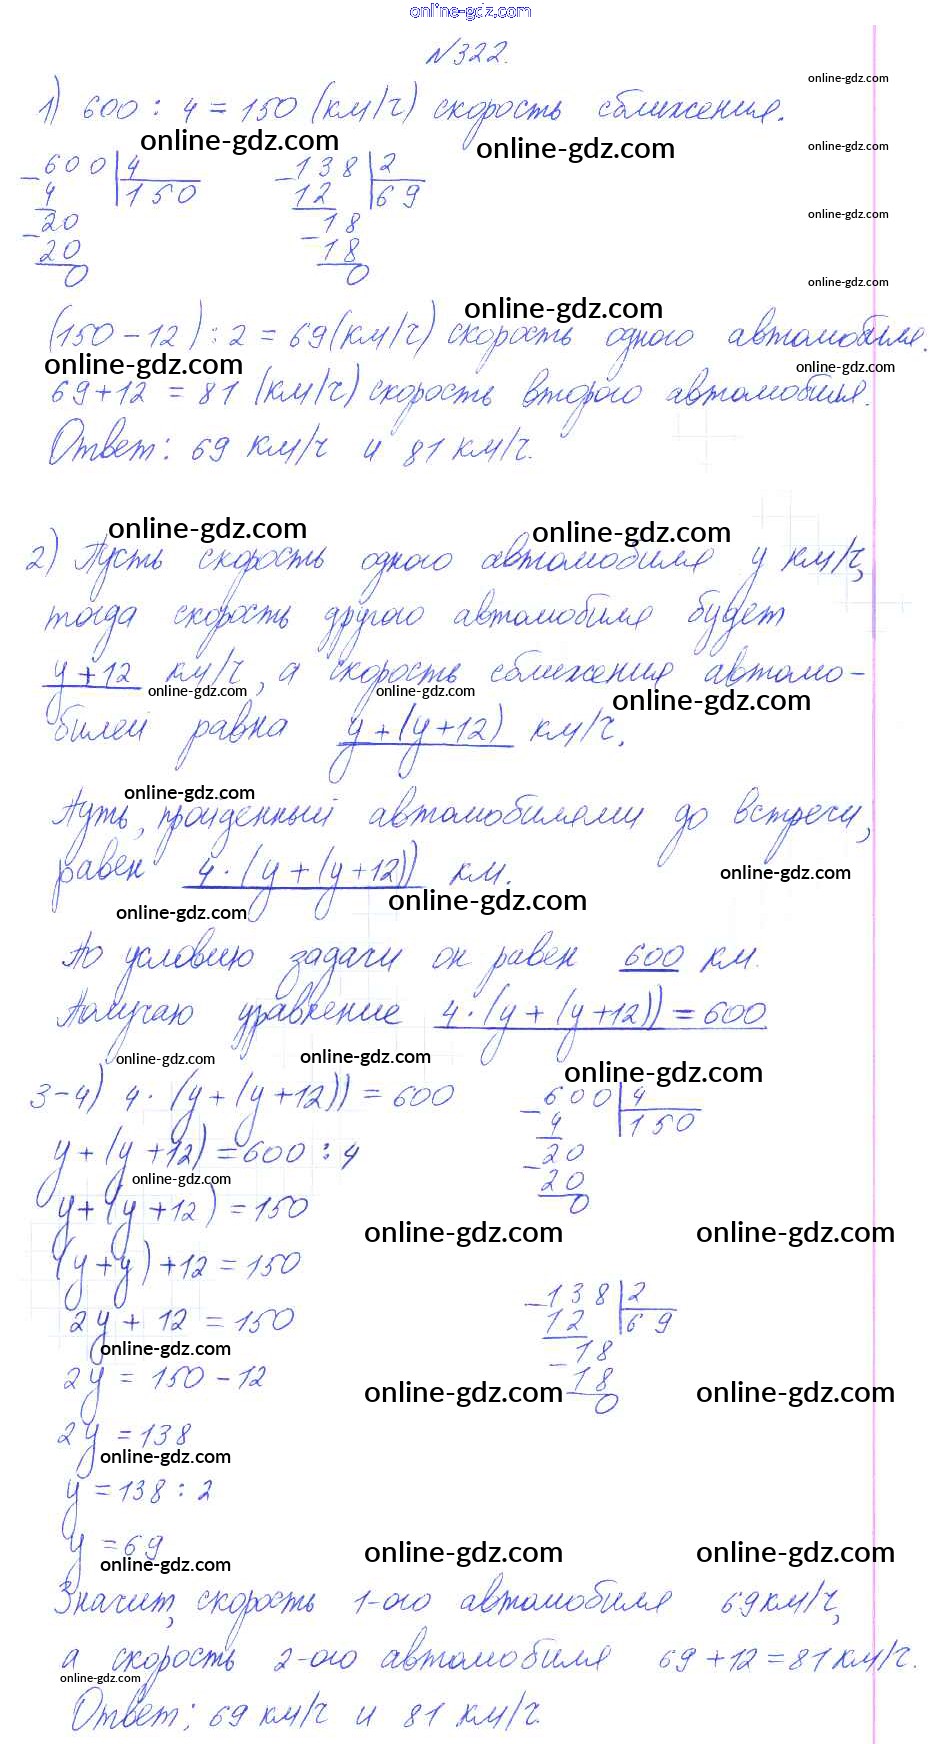 online-gdz.com
№322.
online-gdz.com
1) 600 : 4 = 150 (км/ч) скорость сближения.
online-gdz.com online-gdz.com online-gdz.com
− 600 | 4 − 138 | 2
4 150 12 69
− 20 − 18
20 18
0 0
online-gdz.com
online-gdz.com
online-gdz.com
(150 − 12) : 2 = 69 (км/ч) скорость одного автомобиля.
online-gdz.com online-gdz.com
69 + 12 = 81 (км/ч) скорость второго автомобиля.
Ответ: 69 км/ч и 81 км/ч.
online-gdz.com online-gdz.com
2) Пусть скорость одного автомобиля y км/ч,
тогда скорость другого автомобиля будет
y + 12 км/ч, а скорость сближения автомо-
online-gdz.com online-gdz.com online-gdz.com
билей равна y + (y + 12) км/ч.
online-gdz.com
Путь, пройденный автомобилями до встречи,
равен 4 · (y + (y + 12)) км.
online-gdz.com
online-gdz.com online-gdz.com
По условию задачи он равен 600 км.
Получаю уравнение 4 · (y + (y + 12)) = 600
online-gdz.com online-gdz.com online-gdz.com
3-4) 4 · (y + (y + 12)) = 600 − 600 | 4
4 150
y + (y + 12) = 600 : 4 − 20
online-gdz.com 20
y + (y + 12) = 150 0
online-gdz.com online-gdz.com
(y + y) + 12 = 150
2y + 12 = 150 − 138 | 2
12 69
online-gdz.com − 18
2y = 150 − 12 18
online-gdz.com online-gdz.com
0
2y = 138
online-gdz.com
y = 138 : 2
y = 69
online-gdz.com online-gdz.com online-gdz.com
Значит, скорость 1-ого автомобиля 69 км/ч,
а скорость 2-ого автомобиля 69 + 12 = 81 км/ч.
online-gdz.com
Ответ: 69 км/ч и 81 км/ч.